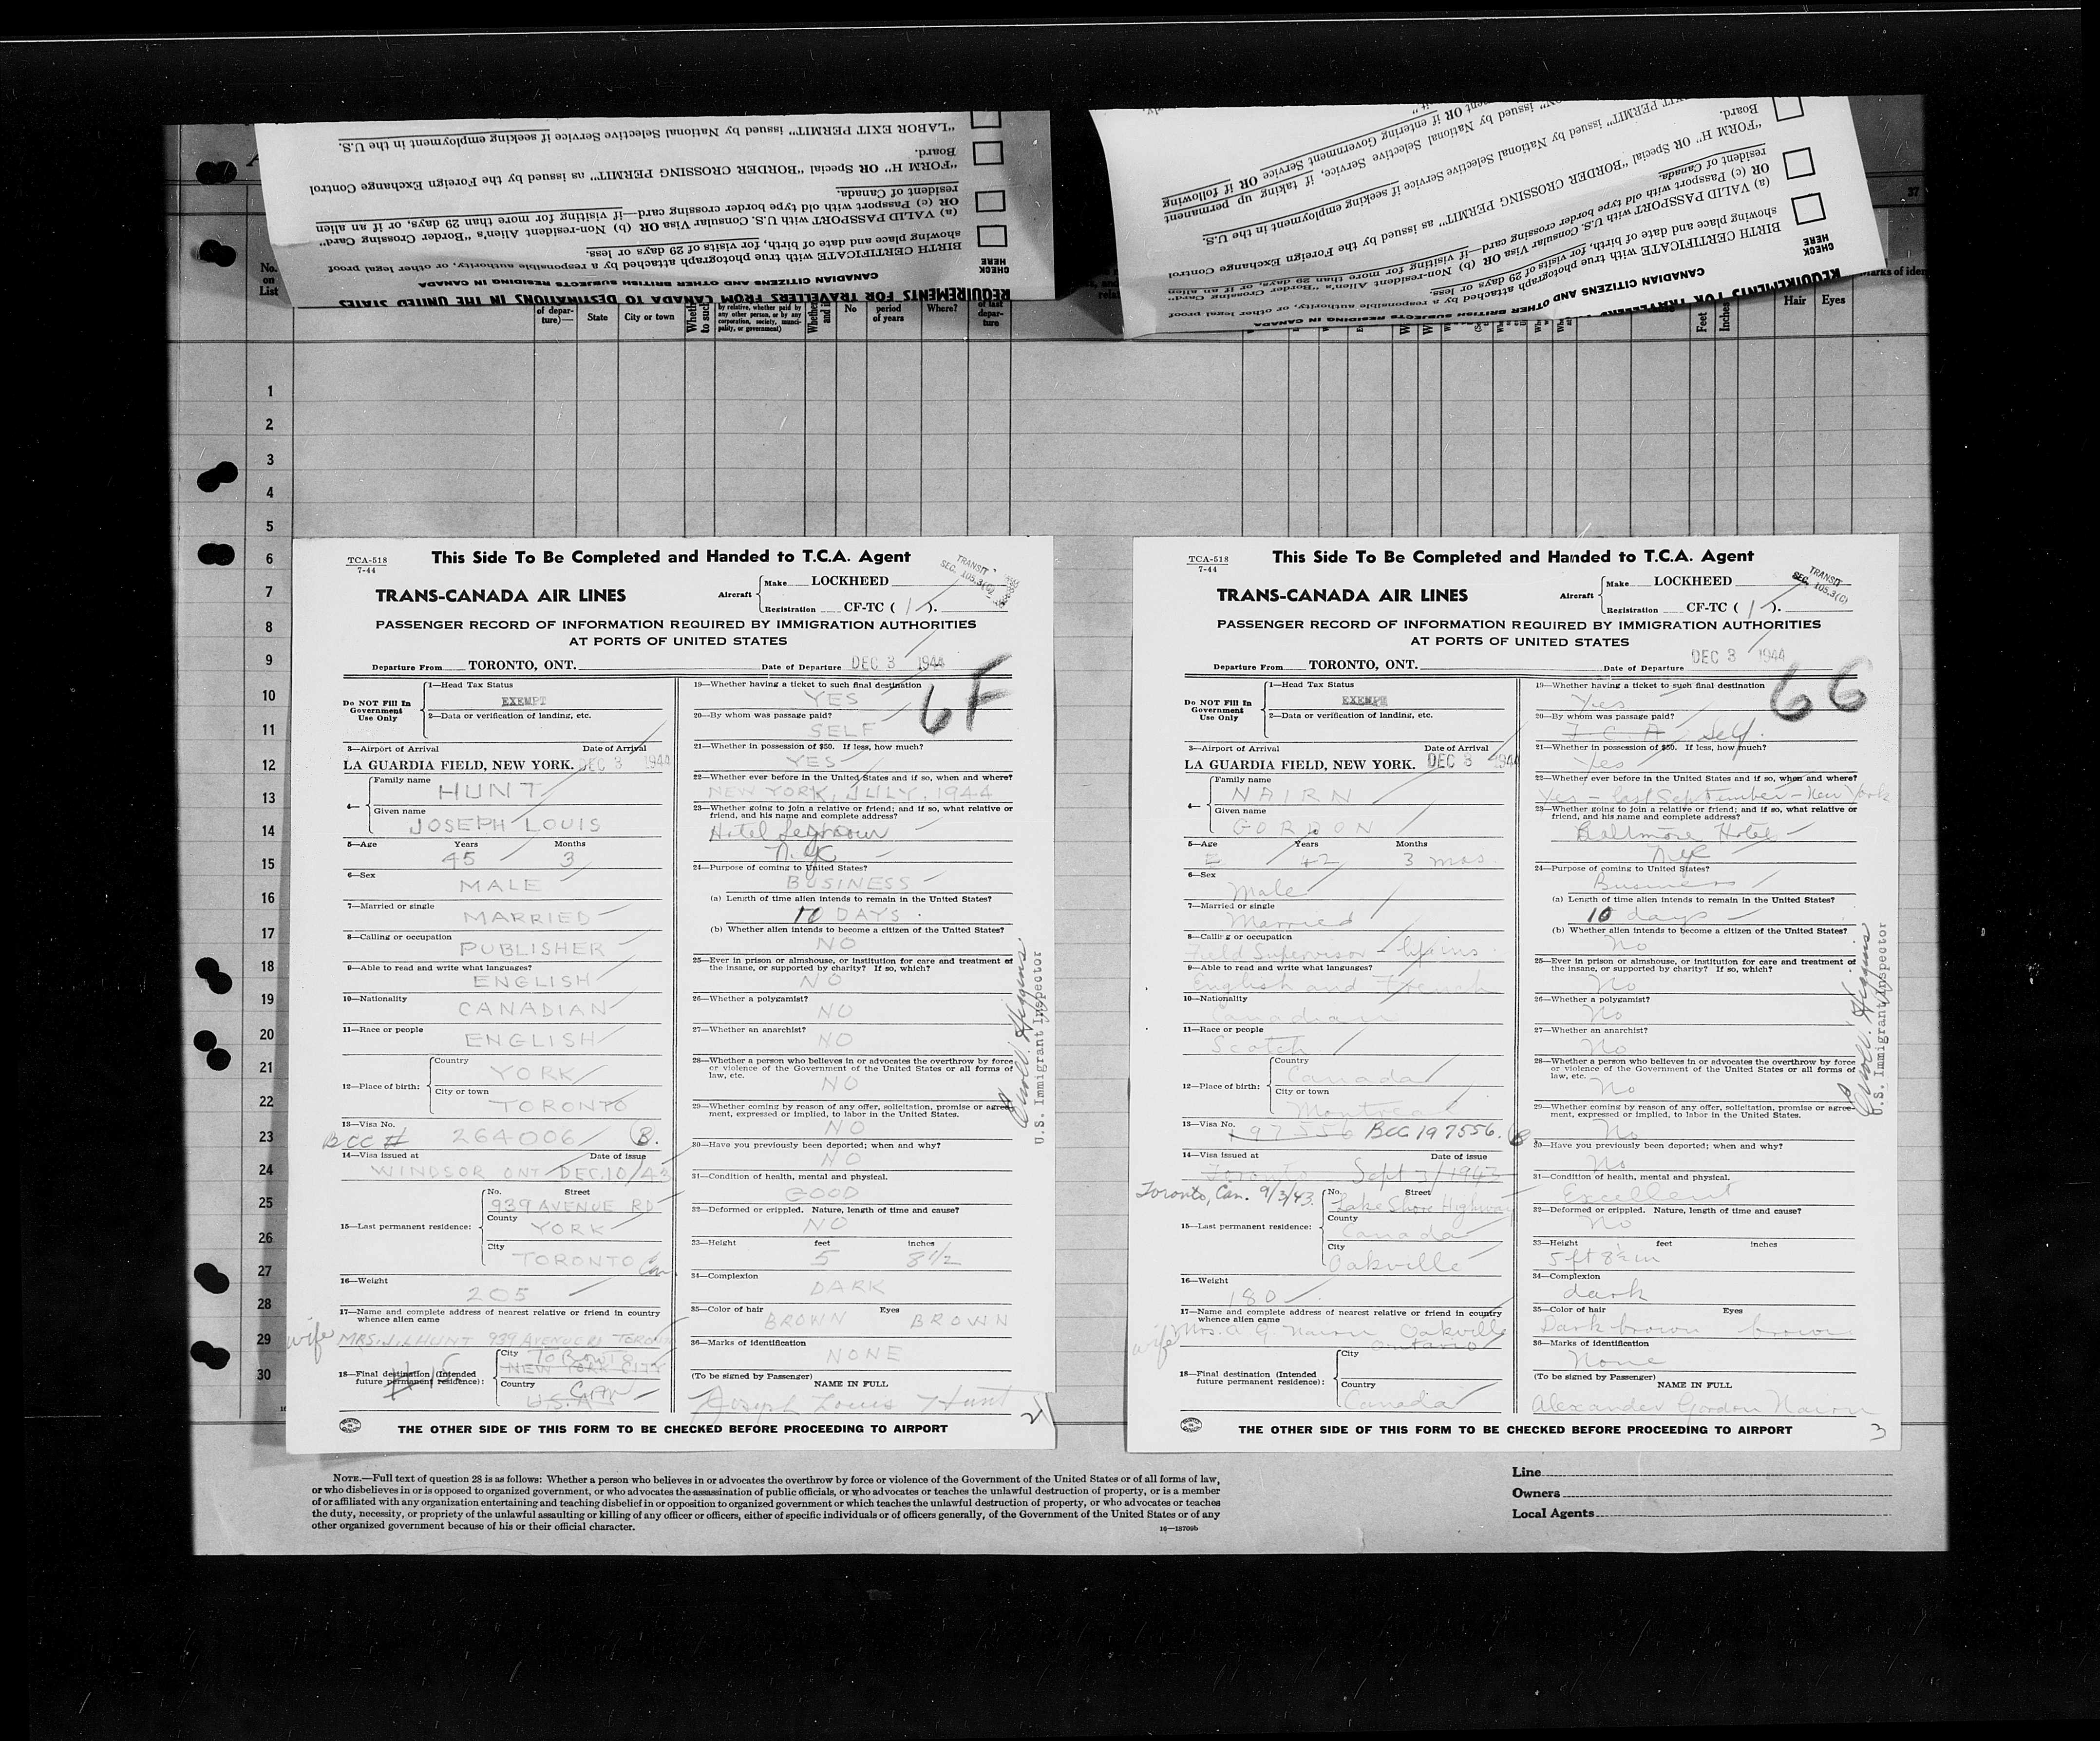 "LABOR EXIT PERMIT" issued by National Selective Service if seeking employment in the U.S.
"FORM H" OR Special "BORDER CROSSING PERMIT" as issued by the Foreign Exchange Control
Board.
(a) VALID PASSPORT with U.S. Consular Visa OR (b) Non-resident Alien's "Border Crossing Card"
OR (c) Passport with old type border crossing card—if visiting for more than 29 days, or if an alien
resident of Canada.
BIRTH CERTIFICATE with true photograph attached by a responsible authority, or other legal proof
showing place and date of birth, for visits of 29 days or less.
CHECK
HERE
CANADIAN CITIZENS AND OTHER BRITISH SUBJECTS RESIDING IN CANADA
REQUIREMENTS FOR TRAVELLERS FROM CANADA TO DESTINATIONS IN THE UNITED STATES
OR if entering Government Service OR if following
issued by National Selective Service, if taking up permanent
EXIT PERMIT" issued by National Selective Service if seeking employment in the U.S.
"FORM H" OR Special "BORDER CROSSING PERMIT" as issued by the Foreign Exchange Control
Board.
(a) VALID PASSPORT with U.S. Consular Visa OR (b) Non-resident Alien's "Border Crossing Card"
OR (c) Passport with old type border crossing card—if visiting for more than 29 days, or if an alien
resident of Canada.
BIRTH CERTIFICATE with true photograph attached by a responsible authority, or other legal proof
showing place and date of birth, for visits of 29 days or less.
CHECK
HERE
CANADIAN CITIZENS AND OTHER BRITISH SUBJECTS RESIDING IN CANADA
37
No.
on
List
of depar-
ture)—
State
City or town
by relative, whether paid by
any other person, or by any
corporation, society, munici-
pality, or government)
No
period
of years
Where?
of last
depar-
ture
Feet
Inches
Hair
Eyes
1
2
3
4
5
6
7
8
9
10
11
12
13
14
15
16
17
18
19
20
21
22
23
24
25
26
27
28
29
30
TCA-518
7-44
This Side To Be Completed and Handed to T.C.A. Agent
TRANSIT
SEC. 105.3(C)
TRANS-CANADA AIR LINES
Aircraft
Make LOCKHEED
Registration CF-TC ( ).
PASSENGER RECORD OF INFORMATION REQUIRED BY IMMIGRATION AUTHORITIES
AT PORTS OF UNITED STATES
Departure From TORONTO, ONT.
Date of Departure DEC 3 1944
6F
Do NOT Fill In
Government
Use Only
1—Head Tax Status
EXEMPT
2—Data or verification of landing, etc.
3—Airport of Arrival Date of Arrival
LA GUARDIA FIELD, NEW YORK. DEC 3 1944
4—
Family name
HUNT
Given name
JOSEPH LOUIS
5—Age Years Months
45 3
6—Sex
MALE
7—Married or single
MARRIED
8—Calling or occupation
PUBLISHER
9—Able to read and write what languages?
ENGLISH
10—Nationality
CANADIAN
11—Race or people
ENGLISH
12—Place of birth:
Country
YORK
City or town
TORONTO
13—Visa No.
BCC # 264006 B.
14—Visa issued at Date of issue
WINDSOR ONT DEC.10/43
15—Last permanent residence:
No. Street
939 AVENUE RD
County
YORK
City
TORONTO Can
16—Weight
205
17—Name and complete address of nearest relative or friend in country
whence alien came
wife MRS. J. L. HUNT 939 AVENUE RD TORONTO
18—Final destination (Intended
future permanent residence):
City TORONTO
NEW YORK CITY
Country Can
U.S.A.
19—Whether having a ticket to such final destination
YES
20—By whom was passage paid?
SELF
21—Whether in possession of $50. If less, how much?
YES
22—Whether ever before in the United States and if so, when and where?
NEW YORK, JULY, 1944
23—Whether going to join a relative or friend; and if so, what relative or
friend, and his name and complete address?
Hotel
N.Y.C
24—Purpose of coming to United States?
BUSINESS
(a) Length of time alien intends to remain in the United States?
10 DAYS.
(b) Whether alien intends to become a citizen of the United States?
NO
25—Ever in prison or almshouse, or institution for care and treatment of
the insane, or supported by charity? If so, which?
NO
26—Whether a polygamist?
NO
27—Whether an anarchist?
NO
28—Whether a person who believes in or advocates the overthrow by force
or violence of the Government of the United States or all forms of
law, etc.
NO
29—Whether coming by reason of any offer, solicitation, promise or agree-
ment, expressed or implied, to labor in the United States.
NO
30—Have you previously been deported; when and why?
NO
31—Condition of health, mental and physical.
GOOD
32—Deformed or crippled. Nature, length of time and cause?
NO
33—Height feet inches
5 8 1/2
34—Complexion
DARK
35—Color of hair Eyes
BROWN BROWN
36—Marks of identification
NONE
(To be signed by Passenger)
NAME IN FULL
Joseph Louis Hunt
2
U.S. Immigrant Inspector
THE OTHER SIDE OF THIS FORM TO BE CHECKED BEFORE PROCEEDING TO AIRPORT
TCA-518
7-44
This Side To Be Completed and Handed to T.C.A. Agent
TRANSIT
SEC. 105.3(C)
TRANS-CANADA AIR LINES
Aircraft
Make LOCKHEED
Registration CF-TC ( ).
PASSENGER RECORD OF INFORMATION REQUIRED BY IMMIGRATION AUTHORITIES
AT PORTS OF UNITED STATES
Departure From TORONTO, ONT.
Date of Departure DEC 3 1944
6G
Do NOT Fill In
Government
Use Only
1—Head Tax Status
EXEMPT
2—Data or verification of landing, etc.
3—Airport of Arrival Date of Arrival
LA GUARDIA FIELD, NEW YORK. DEC 3 1944
4—
Family name
NAIRN
Given name
GORDON
5—Age Years Months
42 3 mos.
6—Sex
Male
7—Married or single
Married
8—Calling or occupation
Field Supervisor -
9—Able to read and write what languages?
English and French
10—Nationality
Canadian
11—Race or people
Scotch
12—Place of birth:
Country
Canada
City or town
Montreal
13—Visa No.
197556 BCC 197556. B
14—Visa issued at Date of issue
Toronto Sept 3/1943
Toronto, Can. 9/3/43.
15—Last permanent residence:
No. Street
Lake Shore Highway
County
Canada
City
Oakville
16—Weight
180
17—Name and complete address of nearest relative or friend in country
whence alien came
wife Mrs. A. G. Nairn Oakville
Ontario
18—Final destination (Intended
future permanent residence):
City
Country
Canada
19—Whether having a ticket to such final destination
Yes
20—By whom was passage paid?
T C A Self
21—Whether in possession of $50. If less, how much?
Yes
22—Whether ever before in the United States and if so, when and where?
Yes - last September - New York
23—Whether going to join a relative or friend; and if so, what relative or
friend, and his name and complete address?
Baltmore Hotel
NYC
24—Purpose of coming to United States?
Business
(a) Length of time alien intends to remain in the United States?
10 days
(b) Whether alien intends to become a citizen of the United States?
No
25—Ever in prison or almshouse, or institution for care and treatment of
the insane, or supported by charity? If so, which?
No
26—Whether a polygamist?
No
27—Whether an anarchist?
No
28—Whether a person who believes in or advocates the overthrow by force
or violence of the Government of the United States or all forms of
law, etc.
No
29—Whether coming by reason of any offer, solicitation, promise or agree-
ment, expressed or implied, to labor in the United States.
No
30—Have you previously been deported; when and why?
No
31—Condition of health, mental and physical.
Excellent
32—Deformed or crippled. Nature, length of time and cause?
No
33—Height feet inches
5 ft 8½ in
34—Complexion
dark
35—Color of hair Eyes
Dark brown brown
36—Marks of identification
None
(To be signed by Passenger)
NAME IN FULL
Alexander Gordon Nairn
3
U.S. Immigrant Inspector
THE OTHER SIDE OF THIS FORM TO BE CHECKED BEFORE PROCEEDING TO AIRPORT
NOTE.—Full text of question 28 is as follows: Whether a person who believes in or advocates the overthrow by force or violence of the Government of the United States or of all forms of law,
or who disbelieves in or is opposed to organized government, or who advocates the assassination of public officials, or who advocates or teaches the unlawful destruction of property, or is a member
of or affiliated with any organization entertaining and teaching disbelief in or opposition to organized government or which teaches the unlawful destruction of property, or who advocates or teaches
the duty, necessity, or propriety of the unlawful assaulting or killing of any officer or officers, either of specific individuals or of officers generally, of the Government of the United States or of any
other organized government because of his or their official character.
16—18709b
Line
Owners
Local Agents